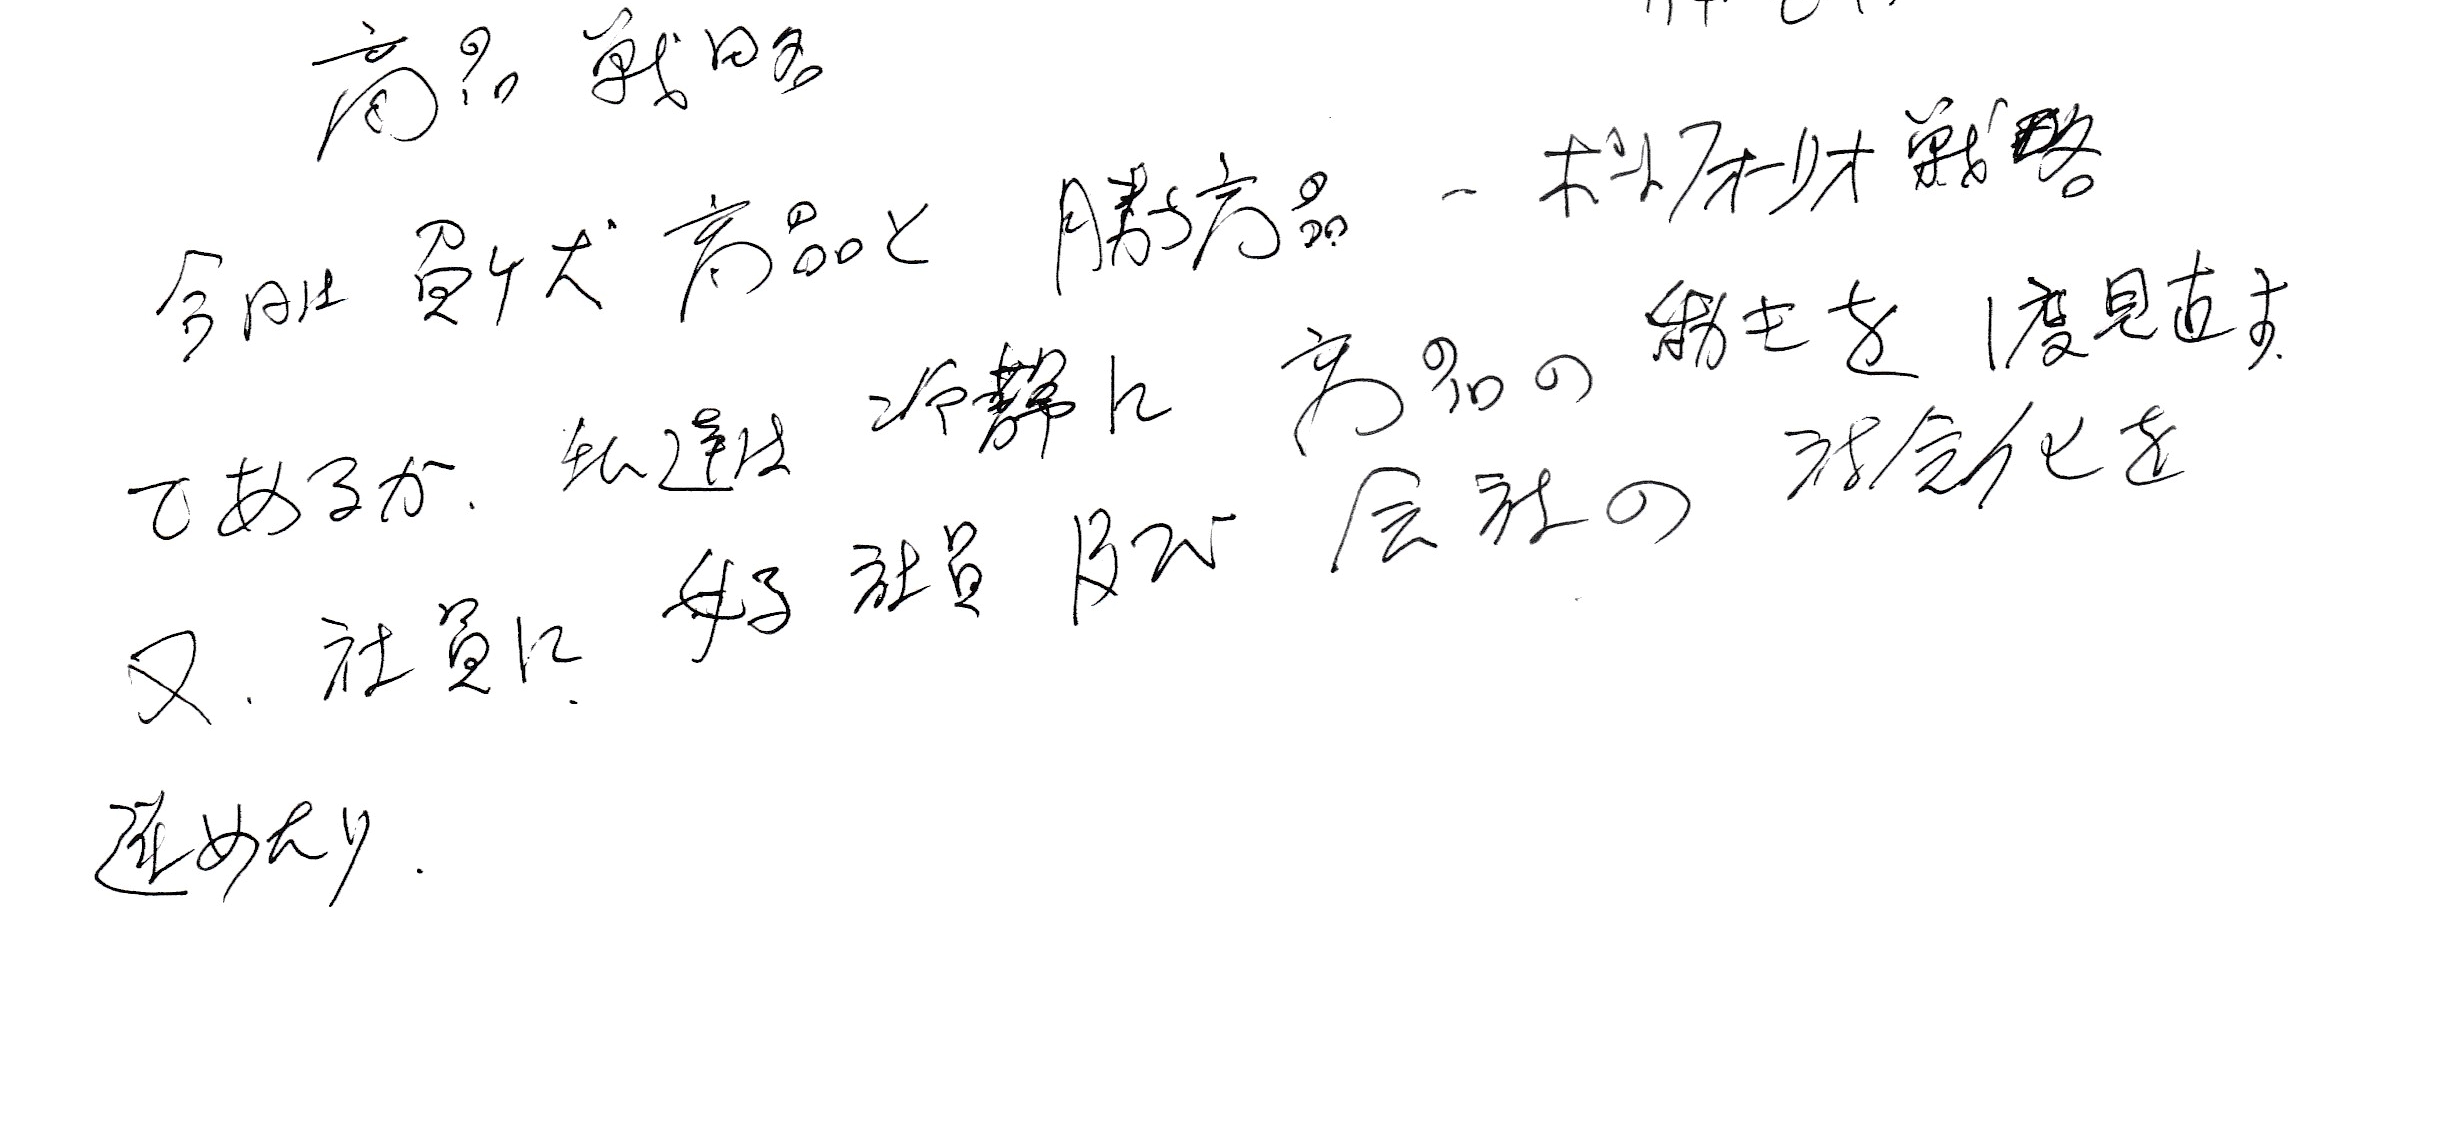 商品戦略
今日は負ケ犬商品と勝ち商品 - ポートフォリオ戦略
であるが、私達は冷静に商品の動きを1度見直す。
又、社員に、好社員及び会社の活念化を
進めたり.